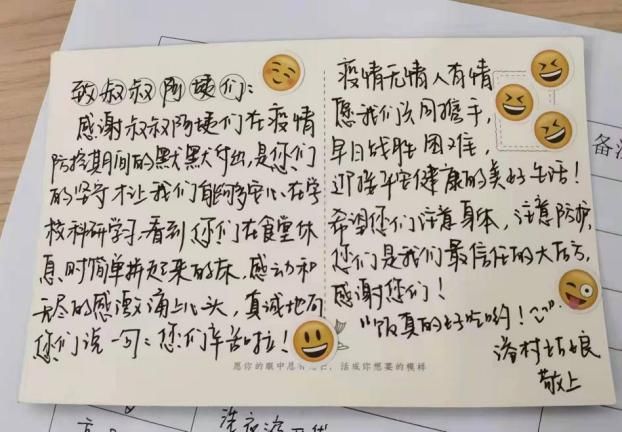 致叔叔阿姨们:
感谢叔叔阿姨们在疫情
防控期间的默默付出,是您们
的坚守才让我们能够安心在学
校科研学习.看到您们在食堂休
息时简单拼起来的床,感动和
无尽的感激涌上心头,真诚地向
您们说一句:您们辛苦啦!
疫情无情人有情
愿我们共同携手,
早日战胜困难,
迎接平安健康的美好生活!
希望您们注意身体,注意防护,
您们是我们最信任的大后方,
感谢您们!
“饭真的好吃哟!”
敬上
愿你的眼中总有光芒,活成你想要的模样
备注